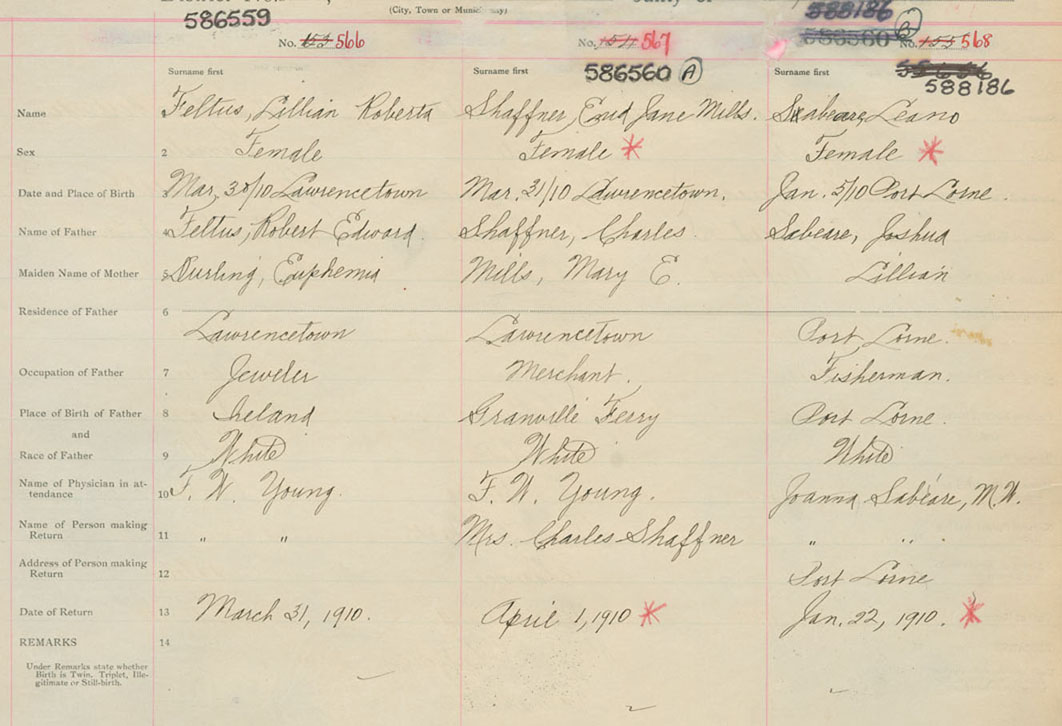 586559
(City, Town or Munic
588186
B
586560
No. 566
No. 567
No. 568
586560 A
588186
Surname first
Surname first
Surname first
Name
Feltus, Lillian Roberta
Shaffner, Enid Jane Mills.
Sabeare, Leano
Sex
2
Female
Female *
Female *
Date and Place of Birth
3
Mar, 30/10 Lawrencetown
Mar. 31/10 Lawrencetown.
Jan. 5/10 Port Lorne.
Name of Father
4
Feltus, Robert Edward.
Shaffner, Charles
Sabeare, Joshua
Maiden Name of Mother
5
Durling, Euphemia
Mills, Mary E.
Lillian
Residence of Father
6
Lawrencetown
Lawrencetown
Port Lorne.
Occupation of Father
7
Jeweler
Merchant.
Fisherman.
Place of Birth of Father
8
Ireland
Granville Ferry
Port Lorne.
and
Race of Father
9
White
White
White
Name of Physician in at-
tendance
10
F. W. Young.
F. W. Young.
Joanna Sabeare, M.W.
Name of Person making
Return
11
" "
Mrs. Charles Shaffner
" "
Address of Person making
Return
12
Port Lorne
Date of Return
13
March 31, 1910.
April 1, 1910 *
Jan. 22, 1910. *
REMARKS
14
Under Remarks state whether
Birth is Twin. Triplet, Ille-
gitimate or Still-birth.